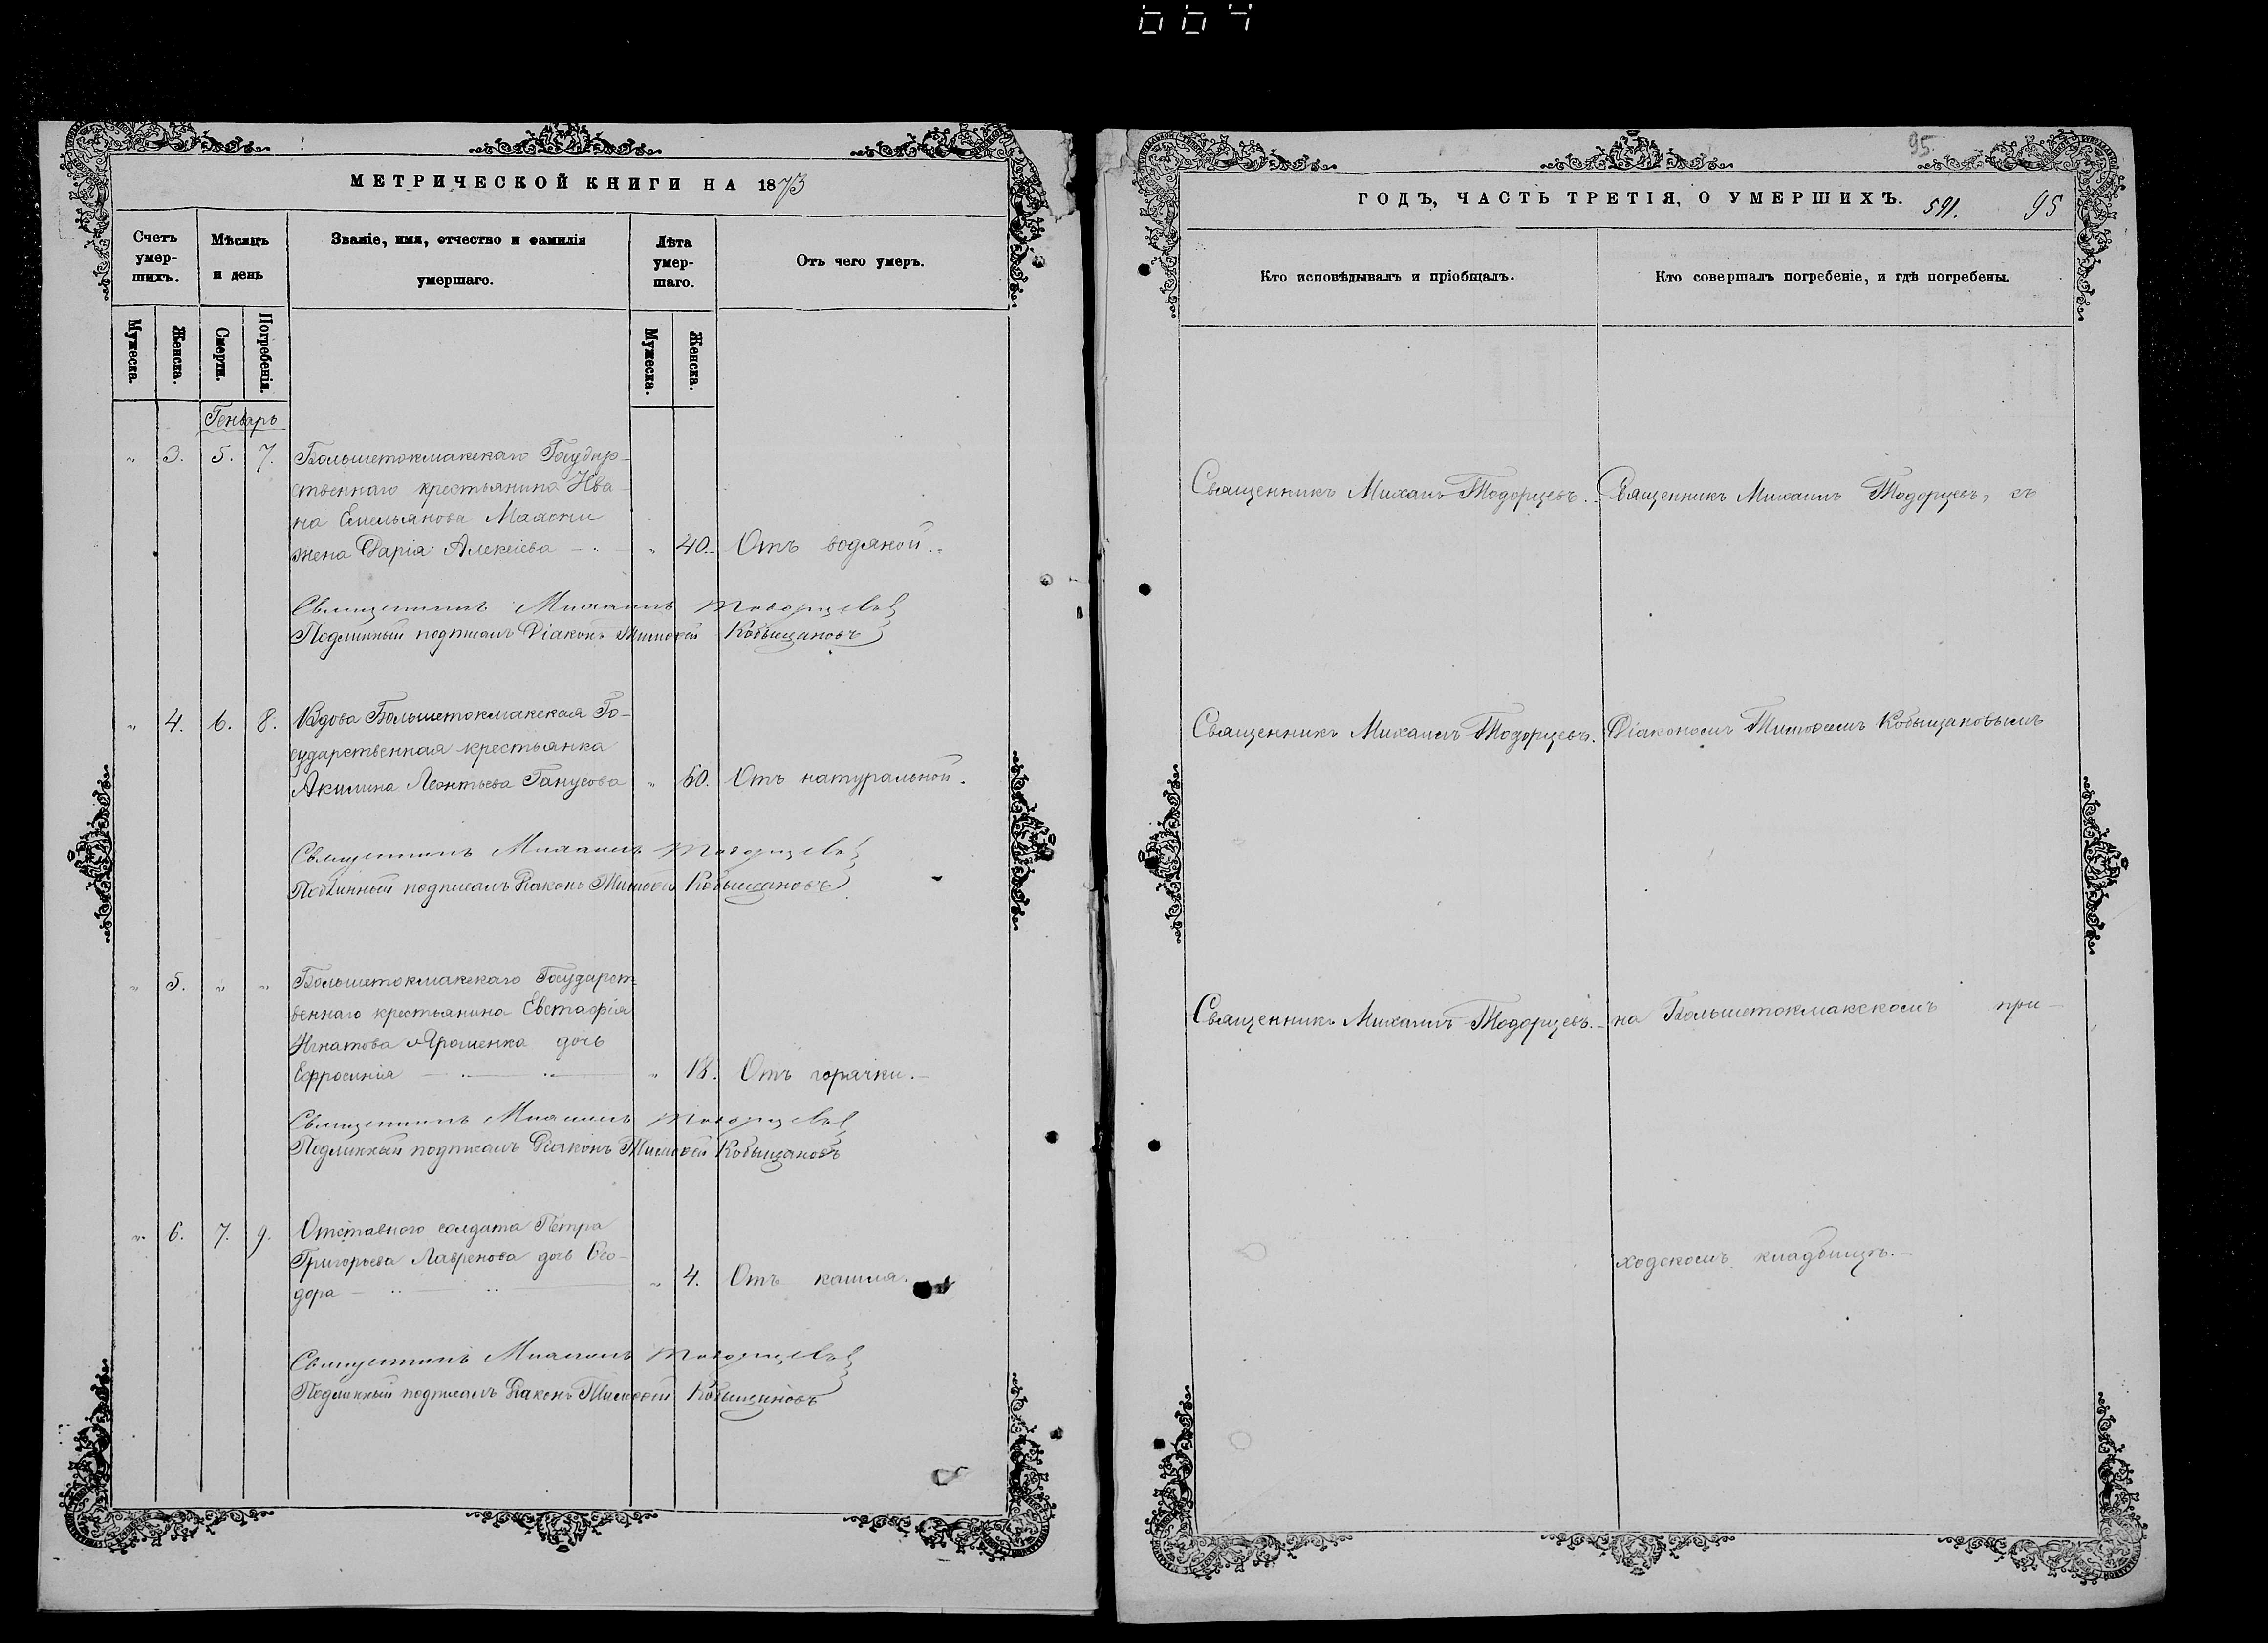 664
МЕТРИЧЕСКОЙ КНИГИ НА 1873
Счетъ умер-шихъ.
Мѣсяцъ и день
Званіе, имя, отчество и фамилія умершаго.
Лѣта умер-шаго.
Отъ чего умеръ.
Мужеска.
Женска.
Смерти.
Погребенія.
Мужеска.
Женска.
Генварь
„ 3. 5. 7. Большетокмакскаго Государ-
ственнаго крестьянина Ива-
на Емельянова Маяски
жена Дарія Алексіева „ 40. Отъ водяной.
Священникъ Михаилъ Тодорцевъ
Подлинный подписалъ Діаконъ Тимофей Кобыщановъ
„ 4. 6. 8. Вдова Большетокмакская Го-
сударственная крестьянка
Акилина Леонтьева Ганусова „ 60. Отъ натуральной.
Священникъ Михаилъ Тодорцевъ
Подлинный подписалъ Діаконъ Тимофей Кобыщановъ
„ 5. „ „ Большетокмакскаго Государст-
веннаго крестьянина Евстафія
Игнатова Ярошенка дочь
Ефросинія „ 18. Отъ горячки.
Священникъ Михаилъ Тодорцевъ
Подлинный подписалъ Діаконъ Тимофей Кобыщановъ
„ 6. 7. 9. Отставного солдата Петра
Григорьева Лавренова дочь Ѳео-
дора „ 4. Отъ кашля.
Священникъ Михаилъ Тодорцевъ
Подлинный подписалъ Діаконъ Тимофей Кобыщановъ
95.
ГОДЪ, ЧАСТЬ ТРЕТІЯ, О УМЕРШИХЪ. 591. 95
Кто исповѣдывалъ и пріобщалъ.
Кто совершалъ погребеніе, и гдѣ погребены.
Священникъ Михаилъ Тодорцевъ. Священникъ Михаилъ Тодорцевъ, съ
Священникъ Михаилъ Тодорцевъ. Діакономъ Тимофеемъ Кобыщановымъ
Священникъ Михаилъ Тодорцевъ. на Большетокмакскомъ при-
ходскомъ кладбищѣ.